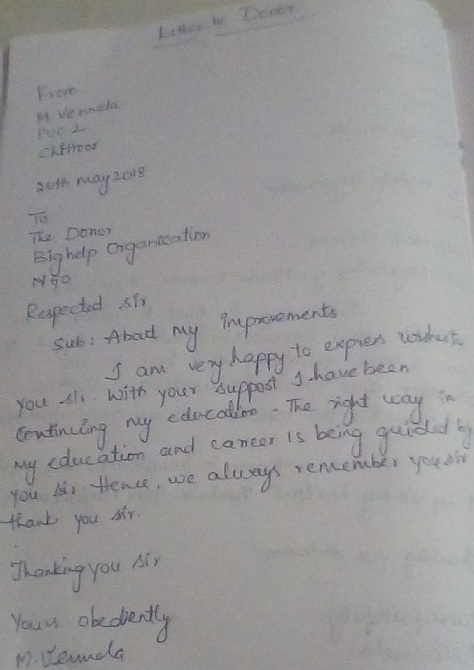 Letter to Donor
From
M. Vennela
PUC 2
Chittoor
26th May 2018
To
The Donor
Bighelp Organisation
NGO
Respected sir
Sub: Abad my improvements.
I am very happy to express wishes to
you sir. With your support I have been
continuing my education. The right way in
my education and career is being guided by
you sir. Hence, we always remember you sir
thank you sir.
Thanking you sir
Yours obediently
M. Vennela